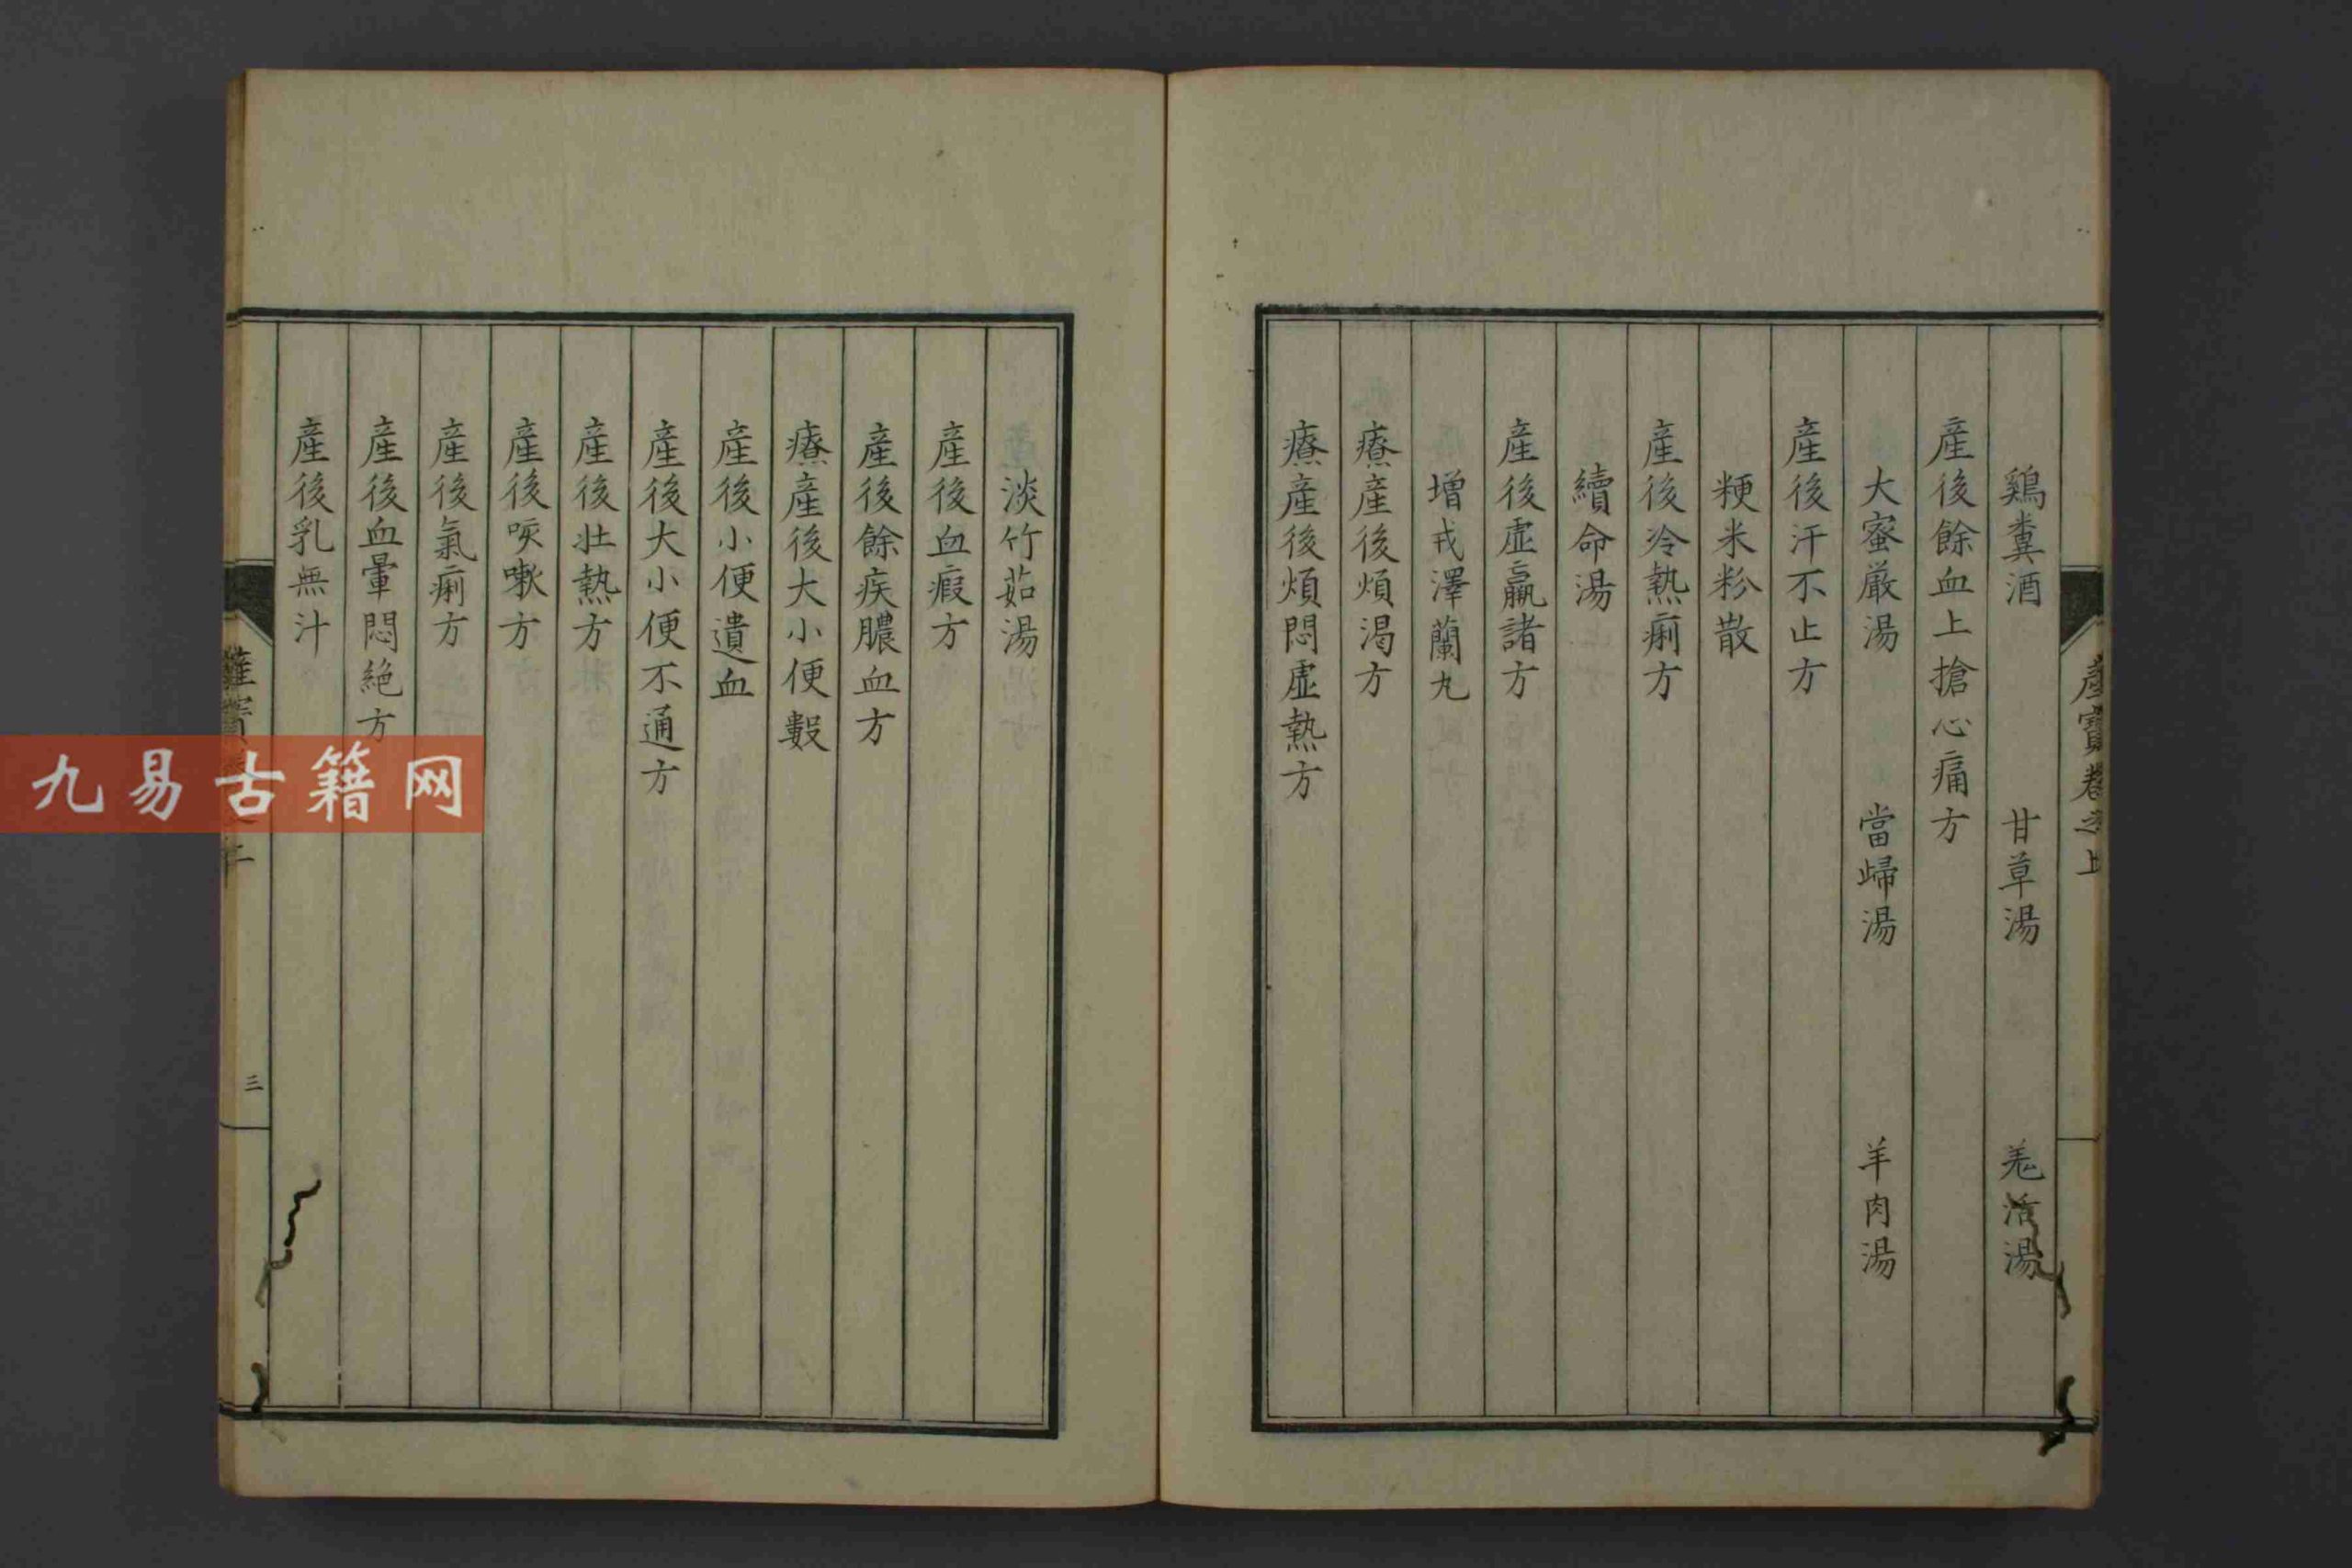 產寶卷之上
鷄糞酒 甘草湯 羌活湯
産後餘血上搶心痛方
大蜜嚴湯 當歸湯 羊肉湯
産後汗不止方
粳米粉散
産後冷熱痢方
續命湯
産後虛羸諸方
增戎澤蘭丸
療產後煩渴方
療產後煩悶虛熱方
淡竹茹湯
産後血瘕方
産後餘疾膿血方
療產後大小便數
産後小便遺血
産後大小便不通方
産後壯熱方
産後咳嗽方
産後氣痢方
産後血暈悶絕方
産後乳無汁
三
九易古籍网